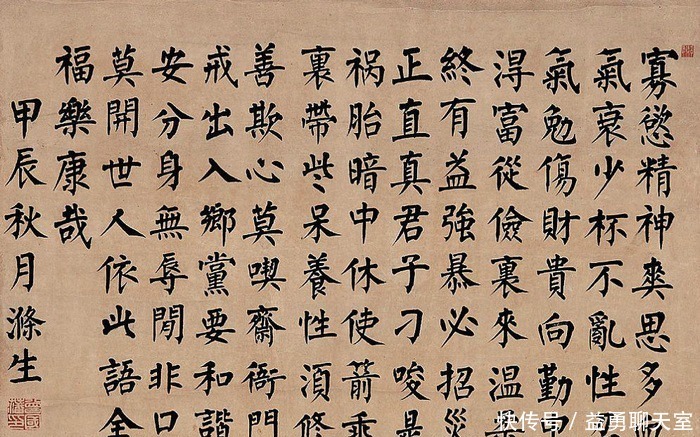 寡慾精神爽思多
氣衰少杯不亂性
氣勉傷財貴向勤中
淂富從儉裏來温
終有益強暴必招災
正直真君子刁唆是
祸胎暗中休使箭乖
裏帶些呆養性須修
善欺心莫喫齋衙門
戒出入鄉黨要和諧
安分身無辱閒非口
莫開世人依此語全
福樂康哉
甲辰秋月滌生
快传号 / 益勇聊天室